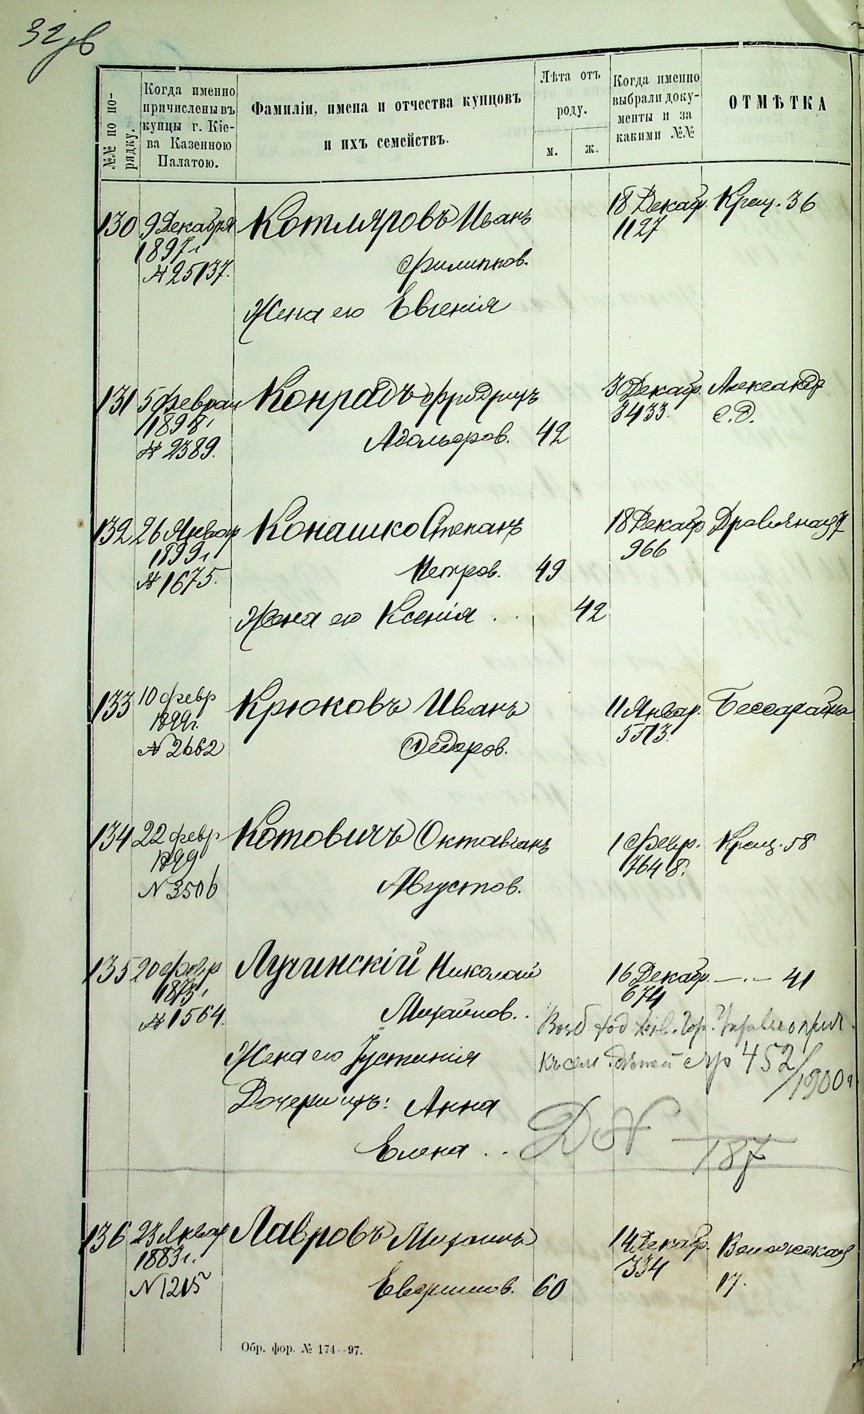 32об
№№ по порядку.
Когда именно
причислены въ
купцы г. Кіе-
ва Казенною
Палатою.
Фамиліи, имена и отчества купцовъ
и ихъ семействъ.
Лѣта отъ
роду.
м. ж.
Когда именно
выбрали доку-
менты и за
какими №№
ОТМѢТКА
130 9 Декабря Котляровъ Иванъ 18 Декабр. Крещ. 36
1897 г. Филиппов. 1127
№ 25137.
Жена его Евгенія
131 5 Феврал Конрадъ Фридрихъ 3 Декабр. Александр
1898 г. Адольфов. 42 3433. с.д.
№ 2389.
132 26 Январ Конашко Степанъ 18 Декабр
1899 г. Петров. 49 966
№ 1675.
Жена его Ксенія . . 42
133 10 февр Крюковъ Иванъ 11 Январ. Бессарабка
1899 г. Ѳедоров. 5513.
№ 2662
134 22 февр Котовичъ Октавіанъ 1 Февр. Крещ. 58
1899 Августов. 7648.
№ 3506
135 20 февр Лучинскій Николай 16 Декабр. —·— 41
Михайлов. . 674
№ 1564.
Жена его Іустинія
стр 452/1900 г
Дочери ихъ: Анна
Елена . .
187
136 23 Январ Лавровъ Михаилъ 14 Декабр.
1883 г. 60 334 17.
№ 1215
Обр. фор. № 174—97.